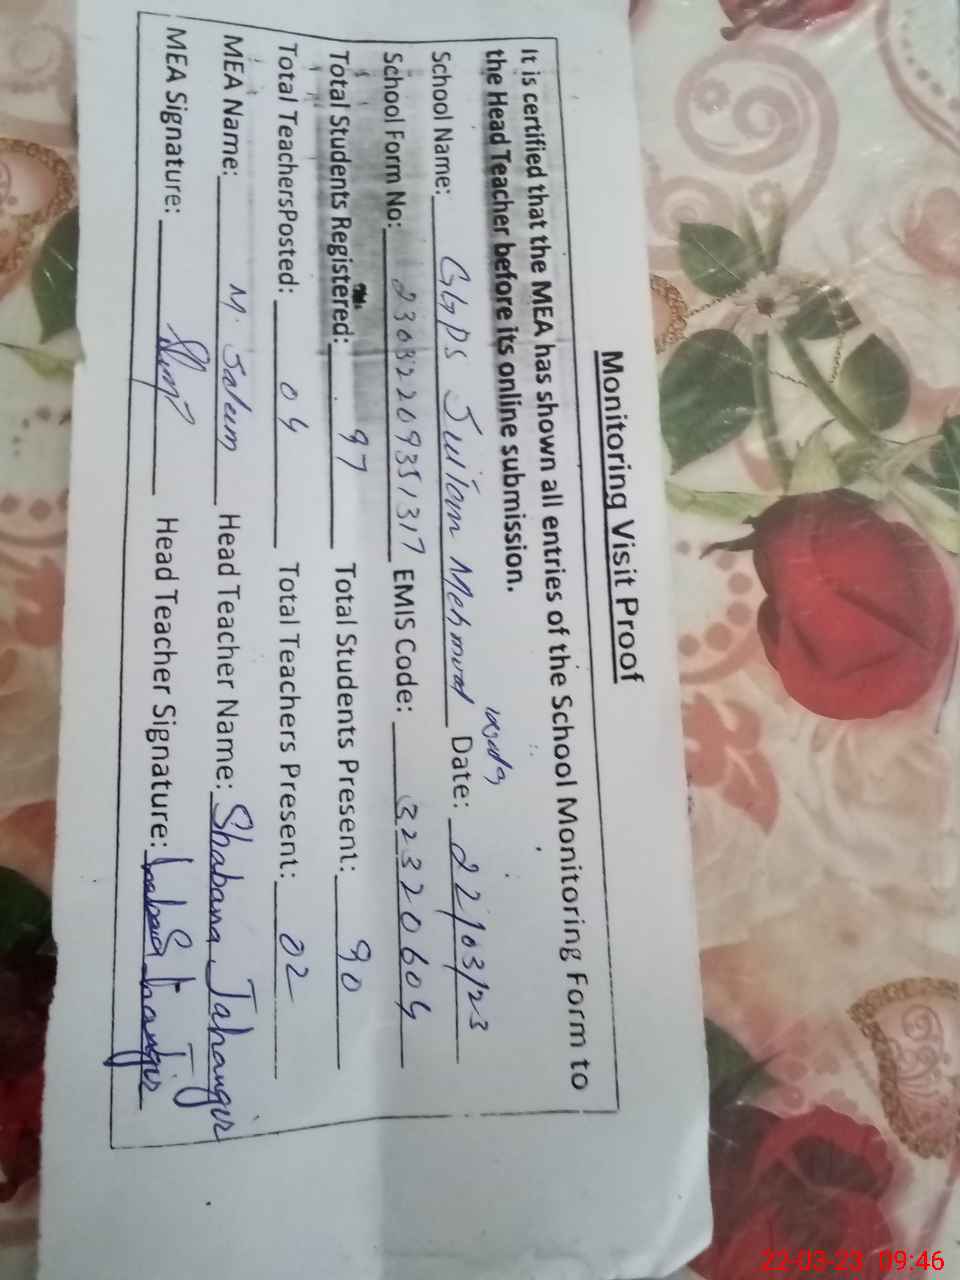 Monitoring Visit Proof
It is certified that the MEA has shown all entries of the School Monitoring Form to
the Head Teacher before its online submission.
School Name: GGPS Mehmood Date: 22/03/23
School Form No: 23032209351317 EMIS Code: 32320604
Total Students Registered: 97 Total Students Present: 90
Total TeachersPosted: 04 Total Teachers Present: 02
MEA Name: M. Saleem Head Teacher Name: Shabana Jahangir
MEA Signature: Head Teacher Signature: Shabana Jahangir
22-03-23 09:46